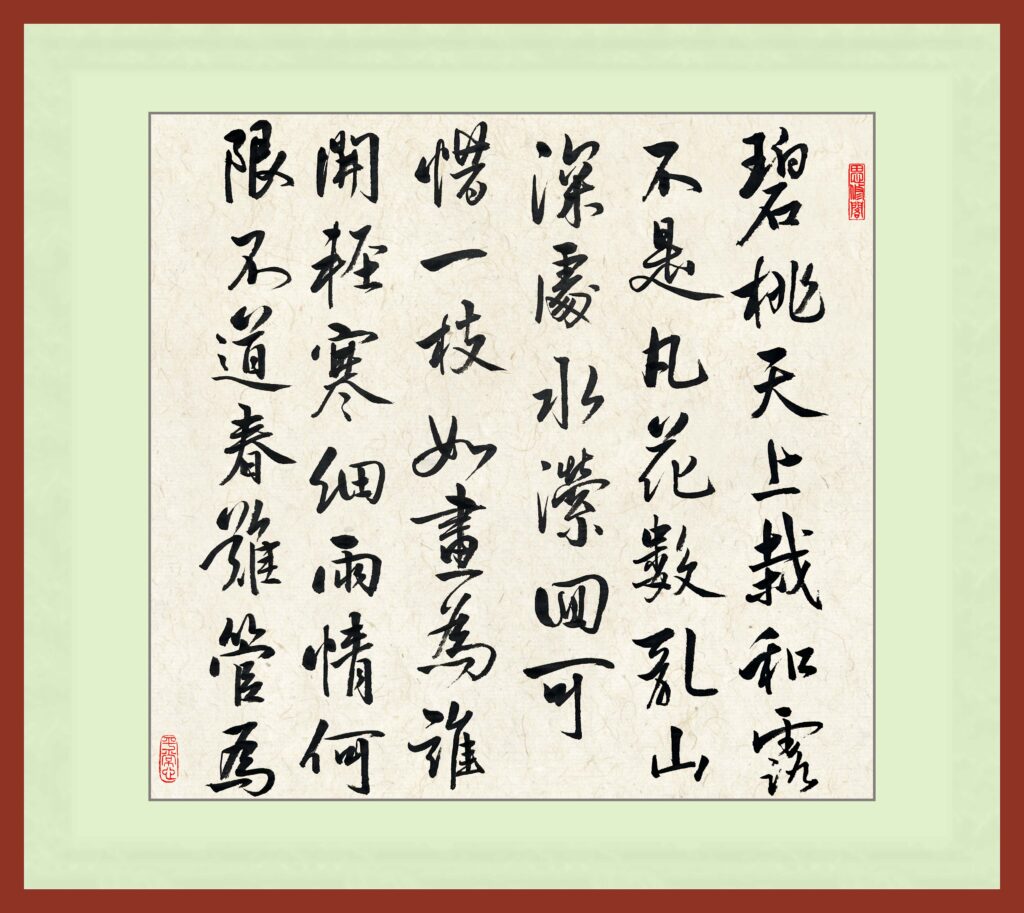 思修閣
碧桃天上栽和露
不是凡花數亂山
深處水瀠囬可
惜一枝如畫為誰
開輕寒細雨情何
限不道春難管為
平常心